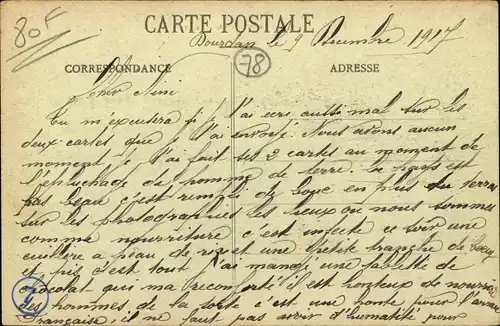 80F
CARTE POSTALE
Dourdan le 9 Décembre 1917
78
CORRESPONDANCE
ADRESSE
Cher Nini
Tu m'excusera si j'ai ecris aussi mal sur les
deux cartes que je t'ai envoyé. Nous avons aucun
moment, je t'ai fait ses 2 cartes au moment de
l'épluchage du pomme de terre. Le pays est
pas beau c'est rempli de boue en plus tu verras
sur les photographies les lieux ou nous sommes
comme nourriture c'est infecte ce soir une
cuillère a peau de riz et une petite tranche de
et pis c'est tout j'ai mangé une tablette de
chocolat qui ma reconforté il est honteux de nourrir
des hommes de la sorte c'est une honte pour l'armée
Française, il ne faut pas avoir d'humanité pour